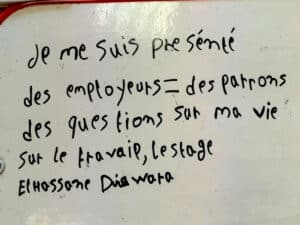 Je me suis présenté
des employeurs = des patrons
des questions sur ma vie
sur le travail, le stage
Elhassane Diawara